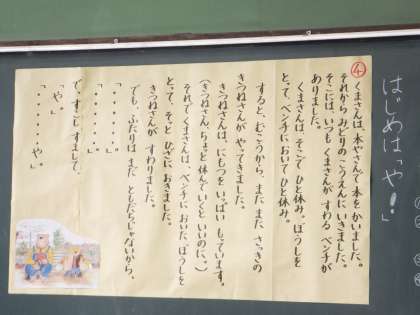 はじめは「や!」
④
くまさんは、本やさんで本をかいました。
それから みどりの こうえんに いきました。
そこには、いつも くまさんが すわる ベンチが
ありました。
くまさんは、そこで ひと休み。ぼうしを
とって、ベンチに おいて ひと休み。
すると、むこうから、また また さっきの
きつねさんが やってきました。
きつねさんは、にもつを いっぱい もっています。
(きつねさん、ちょっと 休んでいくと いいのに。)
それで くまさんは、ベンチに おいた ぼうしを
とって、そっと ひざに おきました。
きつねさんが すわりました。
でも、ふたりは まだ ともだちじゃないから、
「・・・・・・。」
「・・・・・・。」
で、すこし すまして、
「や。」
「・・・・・・や。」